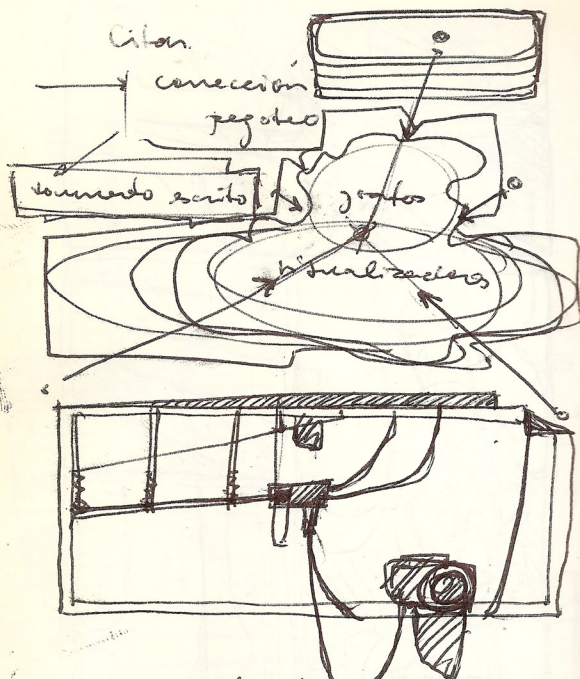 Citar
corrección
pegoteo
documento escrito
gestos
visualizadores